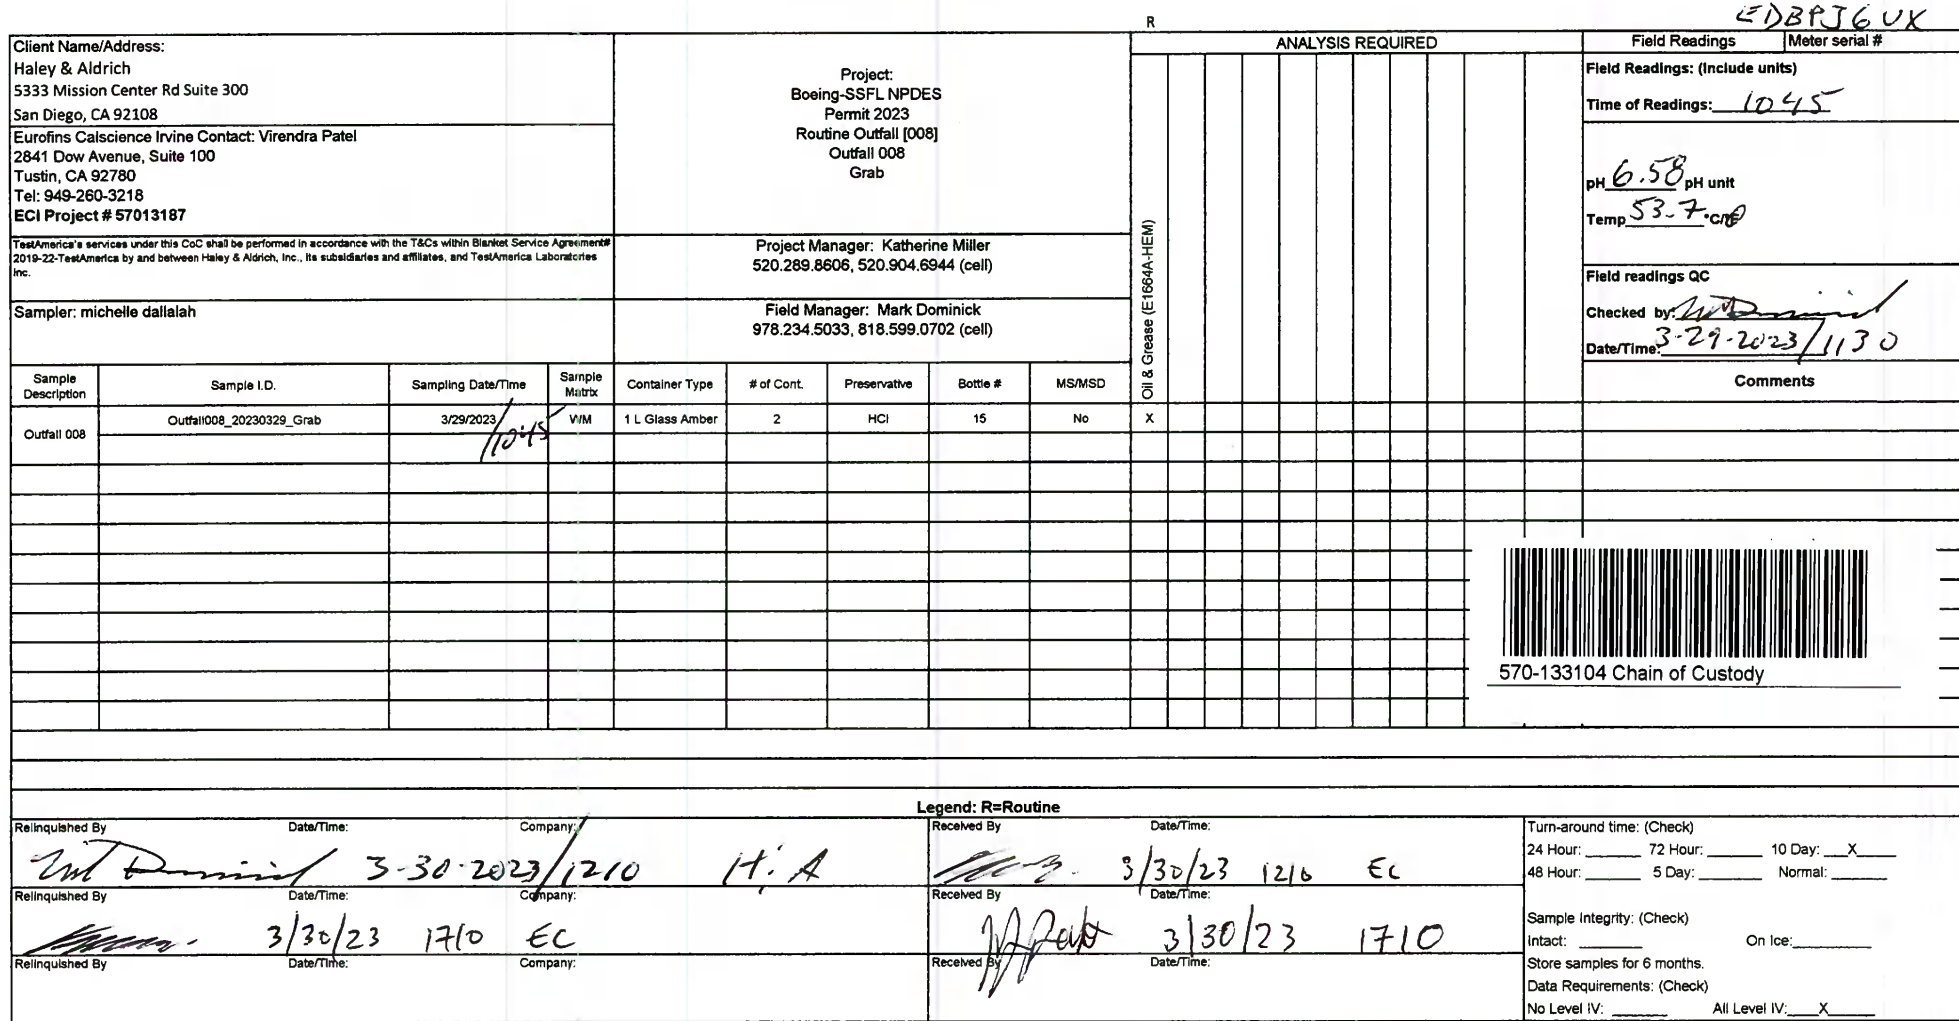 EDBPJ6UX
R
Client Name/Address:
Haley & Aldrich
5333 Mission Center Rd Suite 300
San Diego, CA 92108
Eurofins Calscience Irvine Contact: Virendra Patel
2841 Dow Avenue, Suite 100
Tustin, CA 92780
Tel: 949-260-3218
ECI Project # 57013187
TestAmerica's services under this CoC shall be performed in accordance with the T&Cs within Blanket Service Agreement#
2019-22-TestAmerica by and between Haley & Aldrich, Inc., its subsidiaries and affiliates, and TestAmerica Laboratories
Inc.
Sampler: michelle dallalah
Project:
Boeing-SSFL NPDES
Permit 2023
Routine Outfall [008]
Outfall 008
Grab
Project Manager: Katherine Miller
520.289.8606, 520.904.6944 (cell)
Field Manager: Mark Dominick
978.234.5033, 818.599.0702 (cell)
ANALYSIS REQUIRED
Oil & Grease (E1664A-HEM)
Field Readings Meter serial #
Field Readings: (Include units)
Time of Readings: 1045
pH 6.58 pH unit
Temp 53.7 °C/°F
Field readings QC
Checked by:
Date/Time: 3-29-2023/1130
Comments
Sample Description Sample I.D. Sampling Date/Time Sample Matrix Container Type # of Cont. Preservative Bottle # MS/MSD
Outfall 008 Outfall008_20230329_Grab 3/29/2023 /1045 WM 1 L Glass Amber 2 HCl 15 No X
570-133104 Chain of Custody
Legend: R=Routine
Relinquished By Date/Time: Company:
3-30-2023/1210 H.A
Received By Date/Time:
3/30/23 1210 EC
Relinquished By Date/Time: Company:
3/30/23 1710 EC
Received By Date/Time:
3/30/23 1710
Relinquished By Date/Time: Company:
Received By Date/Time:
Turn-around time: (Check)
24 Hour: 72 Hour: 10 Day: X
48 Hour: 5 Day: Normal:
Sample Integrity: (Check)
Intact: On Ice:
Store samples for 6 months.
Data Requirements: (Check)
No Level IV: All Level IV: X